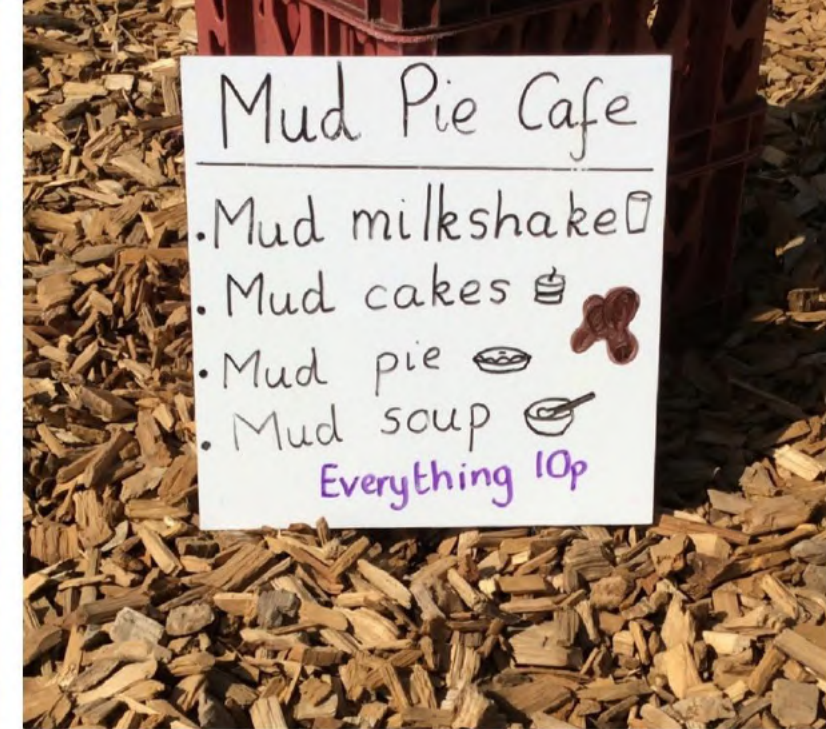 Mud Pie Cafe
.Mud milkshake
. Mud cakes
. Mud pie
. Mud soup
Everything 10p